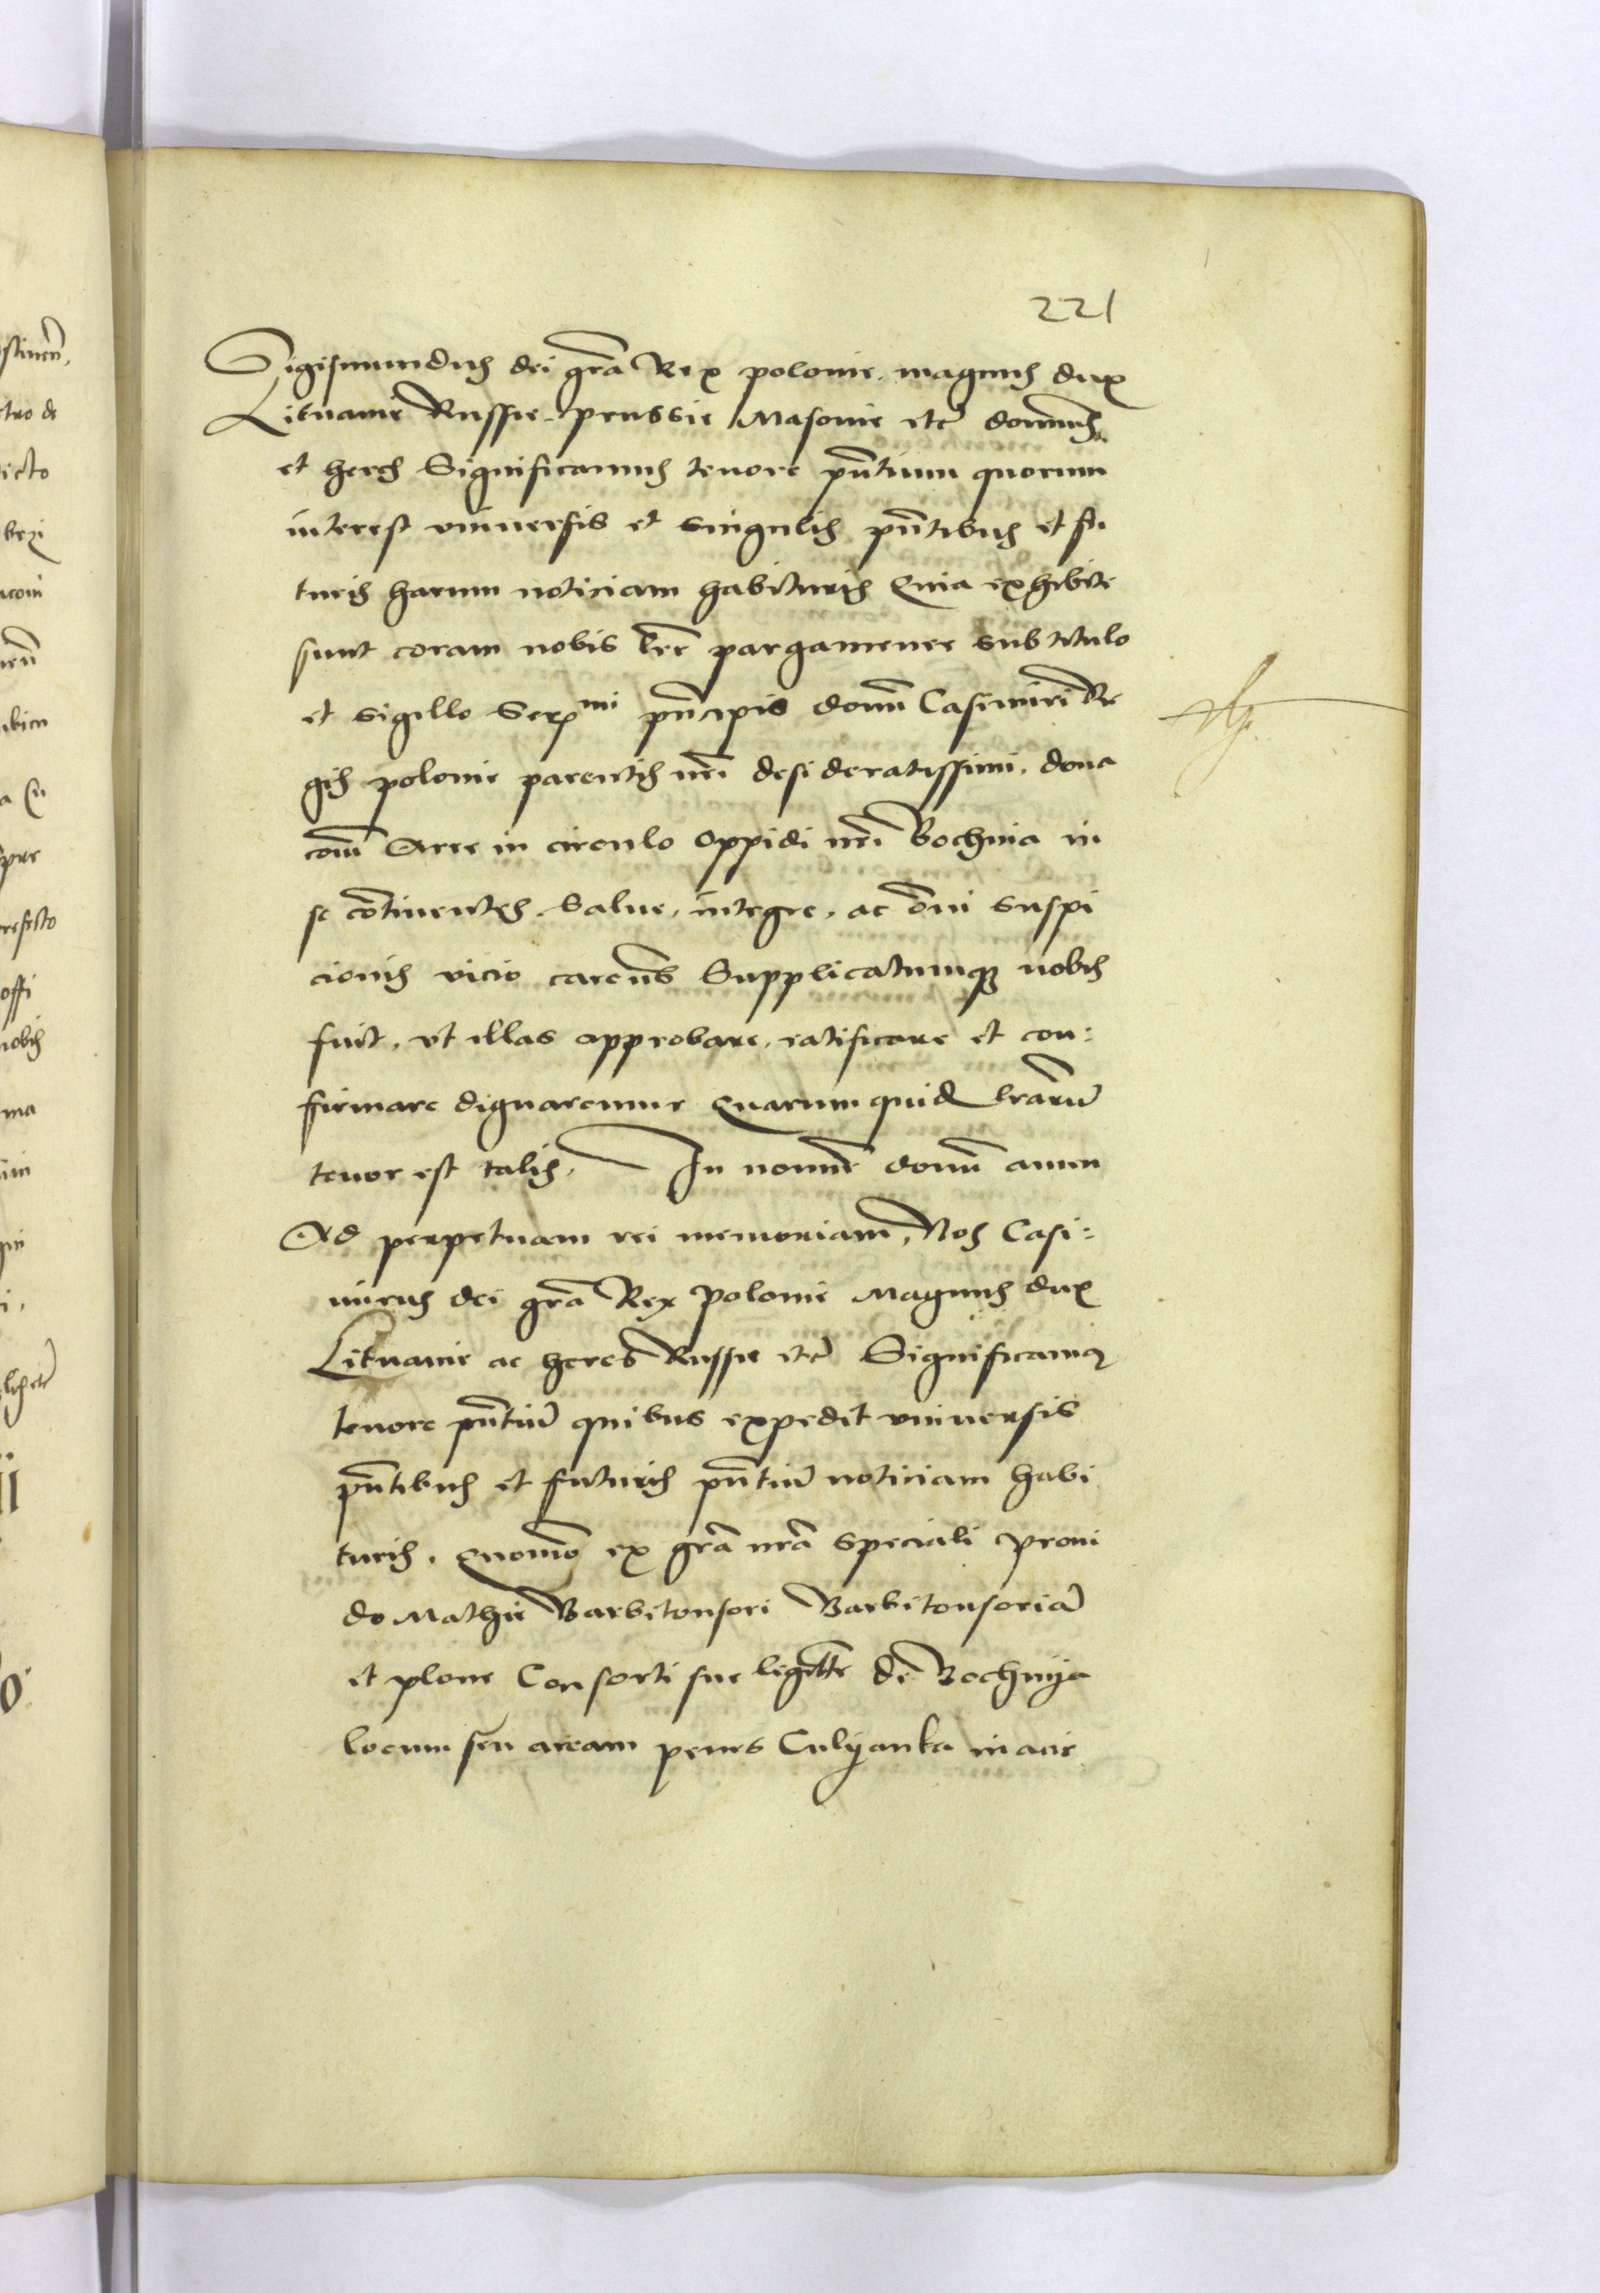 221
Sigismundus dei gra Rex polonie. magnus dux
Lituanie Russie. prussie Masouie etc dominus
et heres Significamus tenore pntium quorum
interest vniuersis et singulis pntibus et fu
turis harum noticiam habituris Quia exhibite
sunt coram nobis lre pargamenee sub titulo
et sigillo Sermi pncipis domi Casimiri Re
gis polonie parentis nri desideratissimi. dona
coem Aree in circulo oppidi nri Bochnia in
se cotinentes. Salue, integre. ac omi suspi
cionis vicio carens Supplicatumque nobis
fuit. vt illas approbare. ratificare et con:
firmare dignaremur Quarum quid lrarum
tenor est talis. In nomine domi amen
Ad perpetuam rei memoriam, Nos Casi:
mirus dei gra Rex polonie Magnus dux
Lituanie ac heres Russie etc Significamus
tenore pntium quibus expedit vniuersis
pntibus et futuris pntium noticiam habi
turis. Quomo ex gra nra speciali proui
do Mathie Barbitonsori Barbitonsoriam
et plone Consorti sue legitte de Bochnija
locum seu aream penes Culyanka in acie